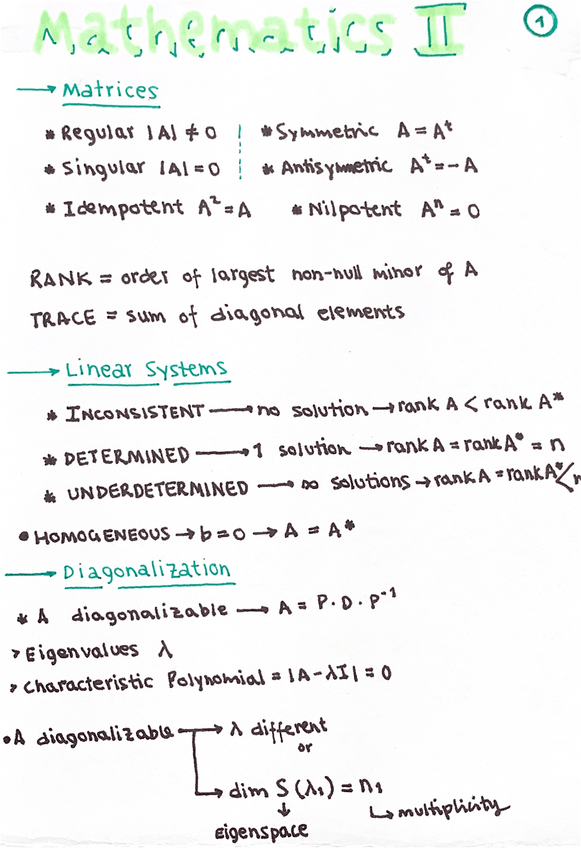 Mathematics II
1
→ Matrices
* Regular |A| ≠ 0 * Symmetric A = Aᵗ
* Singular |A| = 0 * Antisymmetric Aᵗ = -A
* Idempotent A² = A * Nilpotent Aⁿ = 0
RANK = order of largest non-null minor of A
TRACE = sum of diagonal elements
→ Linear Systems
* INCONSISTENT → no solution → rank A < rank A*
* DETERMINED → 1 solution → rank A = rank A* = n
* UNDERDETERMINED → ∞ solutions → rank A = rank A* < n
• HOMOGENEOUS → b = 0 → A = A*
→ Diagonalization
* A diagonalizable → A = P · D · P⁻¹
> Eigenvalues λ
> Characteristic Polynomial = |A - λI| = 0
• A diagonalizable → λ different
or
→ dim S(λ₁) = n₁
↓ ↳ multiplicity
eigenspace